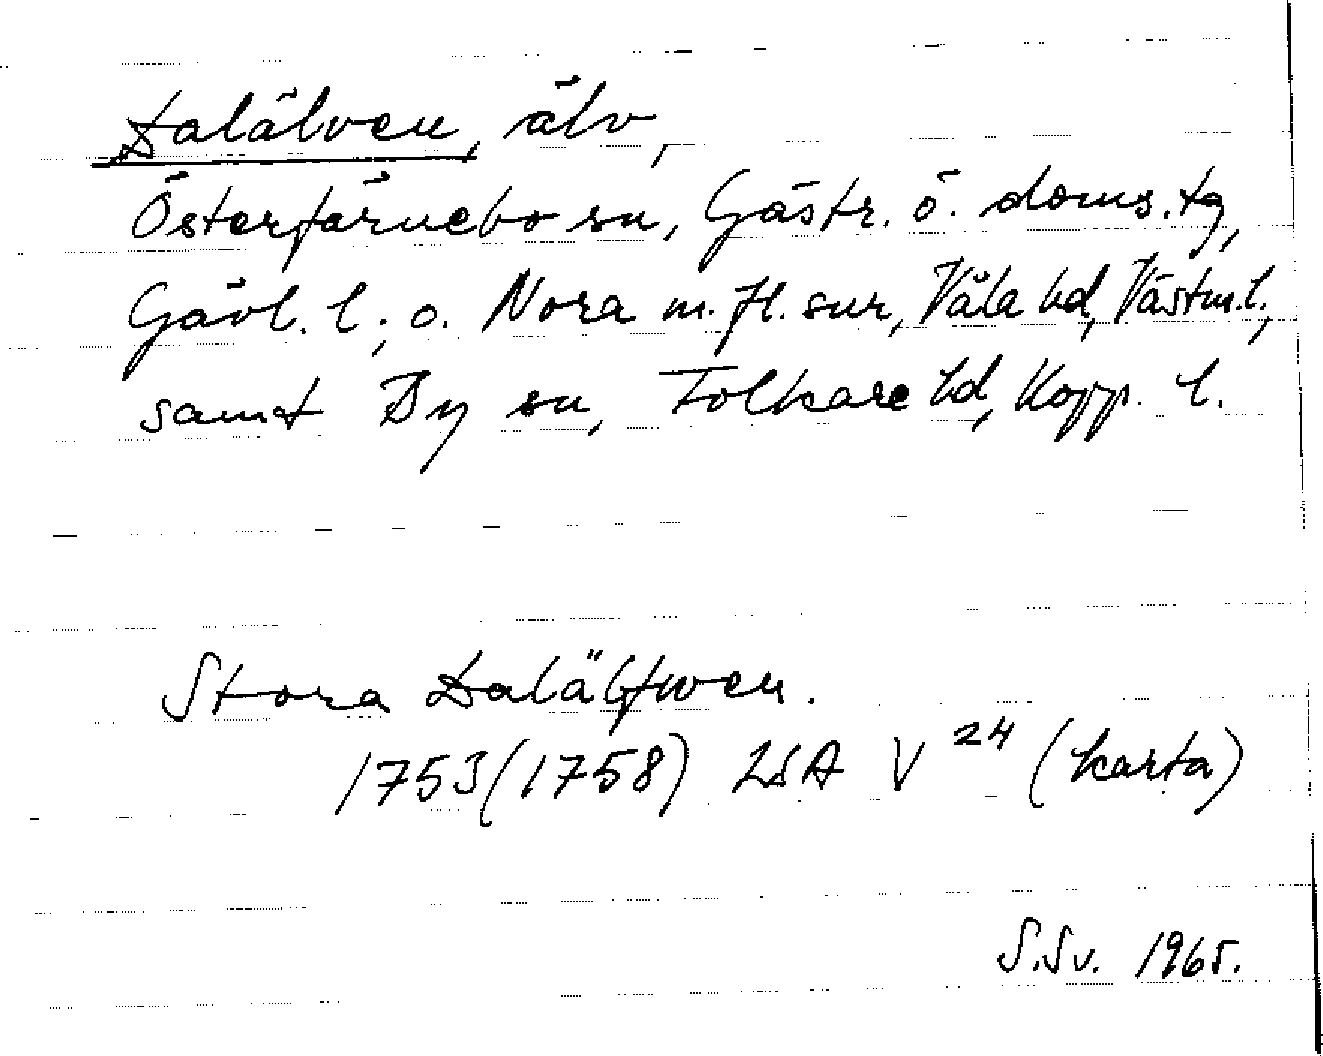 Dalälven, älv,
Österfärnebo sn, Gästr. ö. doms.tg,
Gävl. l., o. Nora m.fl. snr, Våla hd, Västm.l.,
samt By sn, Folkare hd, Kopp. l.
Stora Dalälfwen.
1753(1758) LSA V 24 (karta)
S.Sv. 1965.